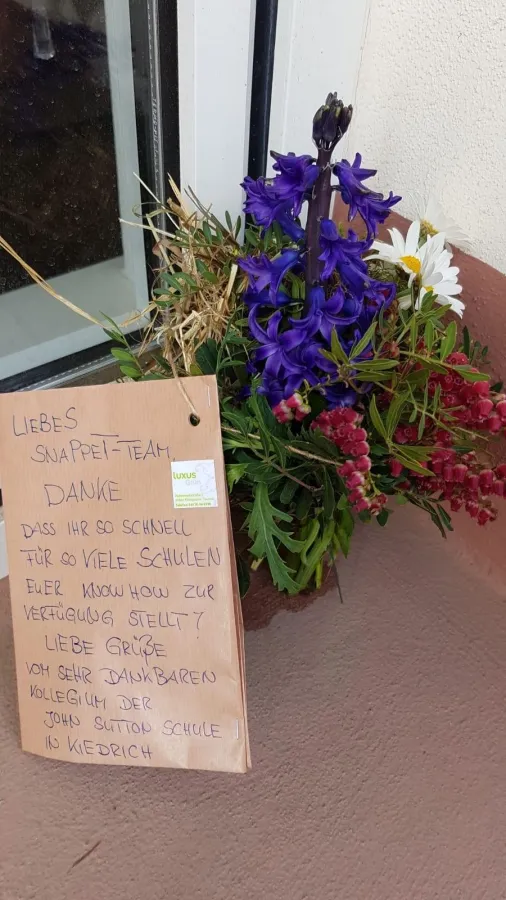 LIEBES
SNAPPET-TEAM,
DANKE
luxus
DASS IHR SO SCHNELL
FÜR SO VIELE SCHULEN
EUER KNOW HOW ZUR
VERFÜGUNG STELLT!
LIEBE GRÜßE
VOM SEHR DANKBAREN
KOLLEGIUM DER
JOHN SUTTON SCHULE
IN KIEDRICH